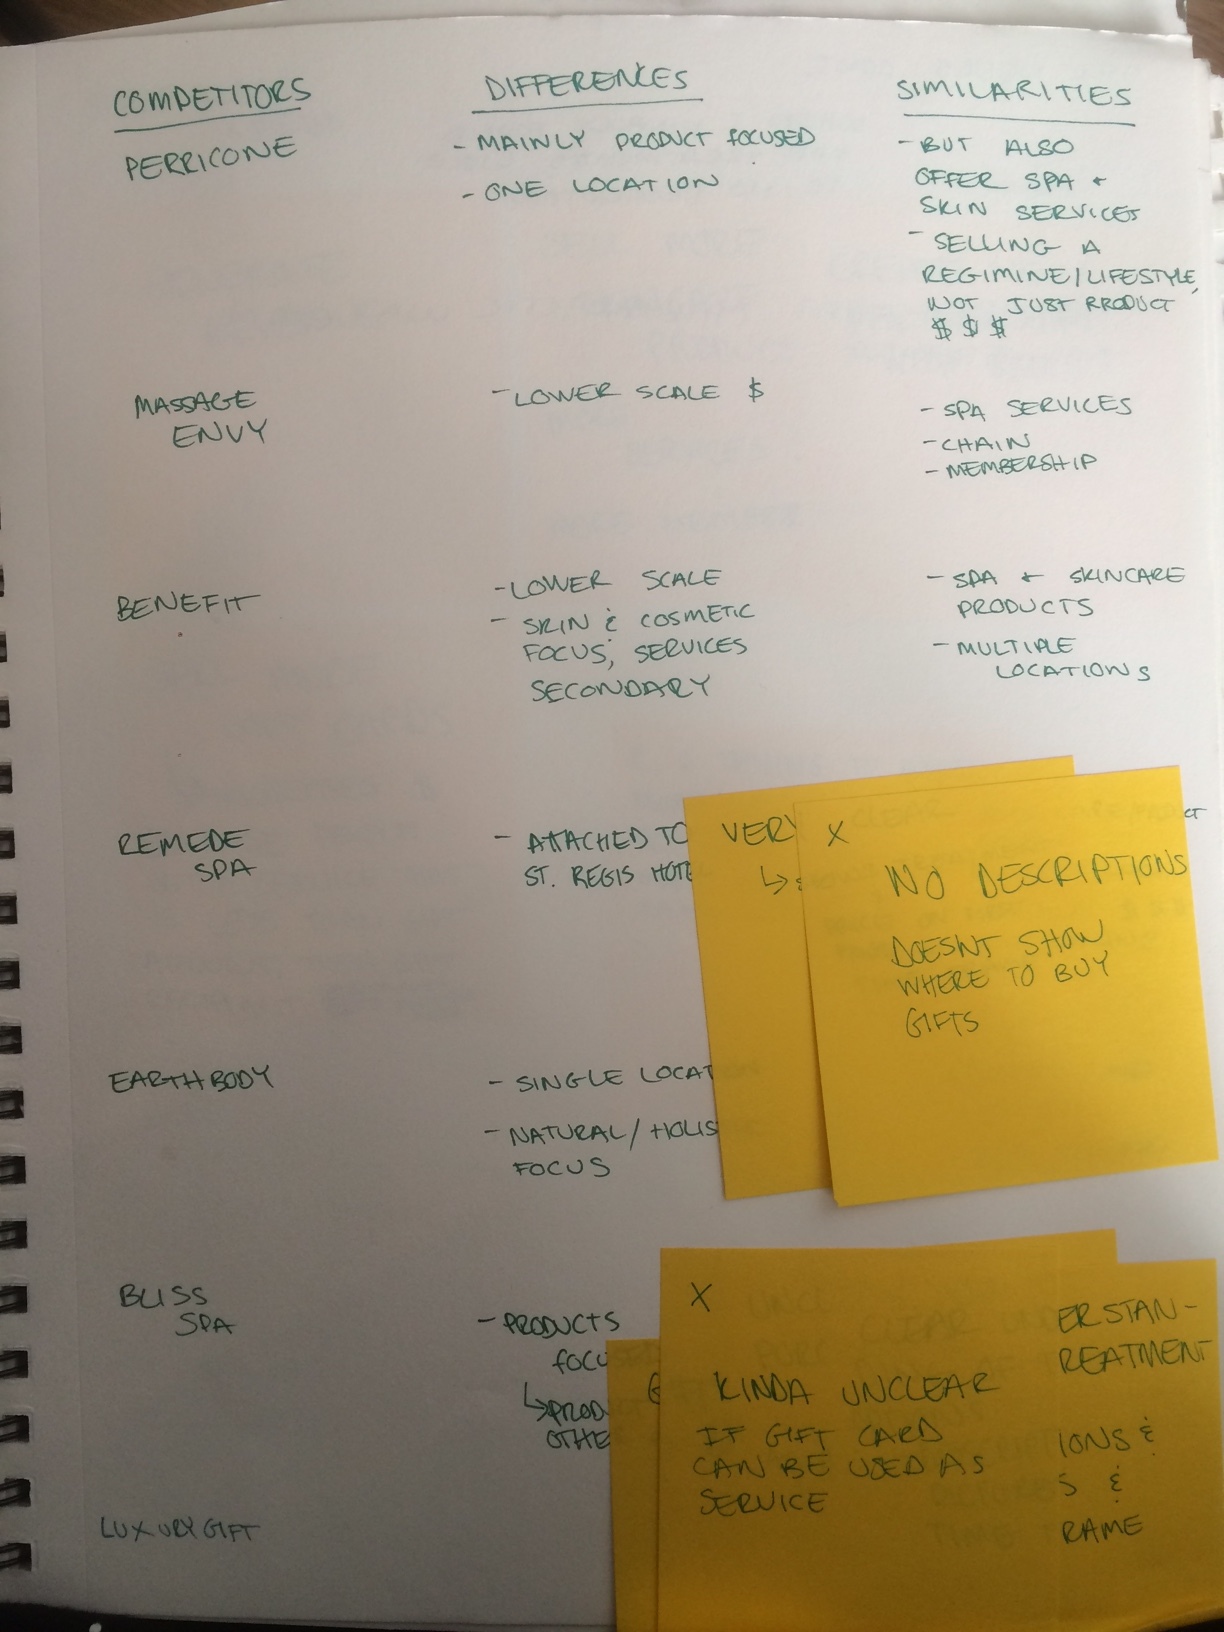 COMPETITORS
DIFFERENCES
SIMILARITIES
PERRICONE
- MAINLY PRODUCT FOCUSED
- ONE LOCATION
- BUT ALSO
OFFER SPA +
SKIN SERVICES
- SELLING A
REGIMINE/LIFESTYLE,
NOT JUST PRODUCT
$ $ $
MASSAGE
ENVY
- LOWER SCALE $
- SPA SERVICES
- CHAIN
- MEMBERSHIP
BENEFIT
- LOWER SCALE
- SKIN & COSMETIC
FOCUS, SERVICES
SECONDARY
- SPA + SKINCARE
PRODUCTS
- MULTIPLE
LOCATIONS
REMEDE
SPA
- ATTACHED TO
ST. REGIS HOTE
VERY
↳
X
NO DESCRIPTIONS
DOESNT SHOW
WHERE TO BUY
GIFTS
CT
EARTHBODY
- SINGLE LOCAT
- NATURAL/HOLIS
FOCUS
BLISS
SPA
- PRODUCTS
FOCU
↳ PROD
OTHE
X
KINDA UNCLEAR
IF GIFT CARD
CAN BE USED AS
SERVICE
ERSTAN-
REATMENT
IONS &
S &
RAME
LUXURY GIFT